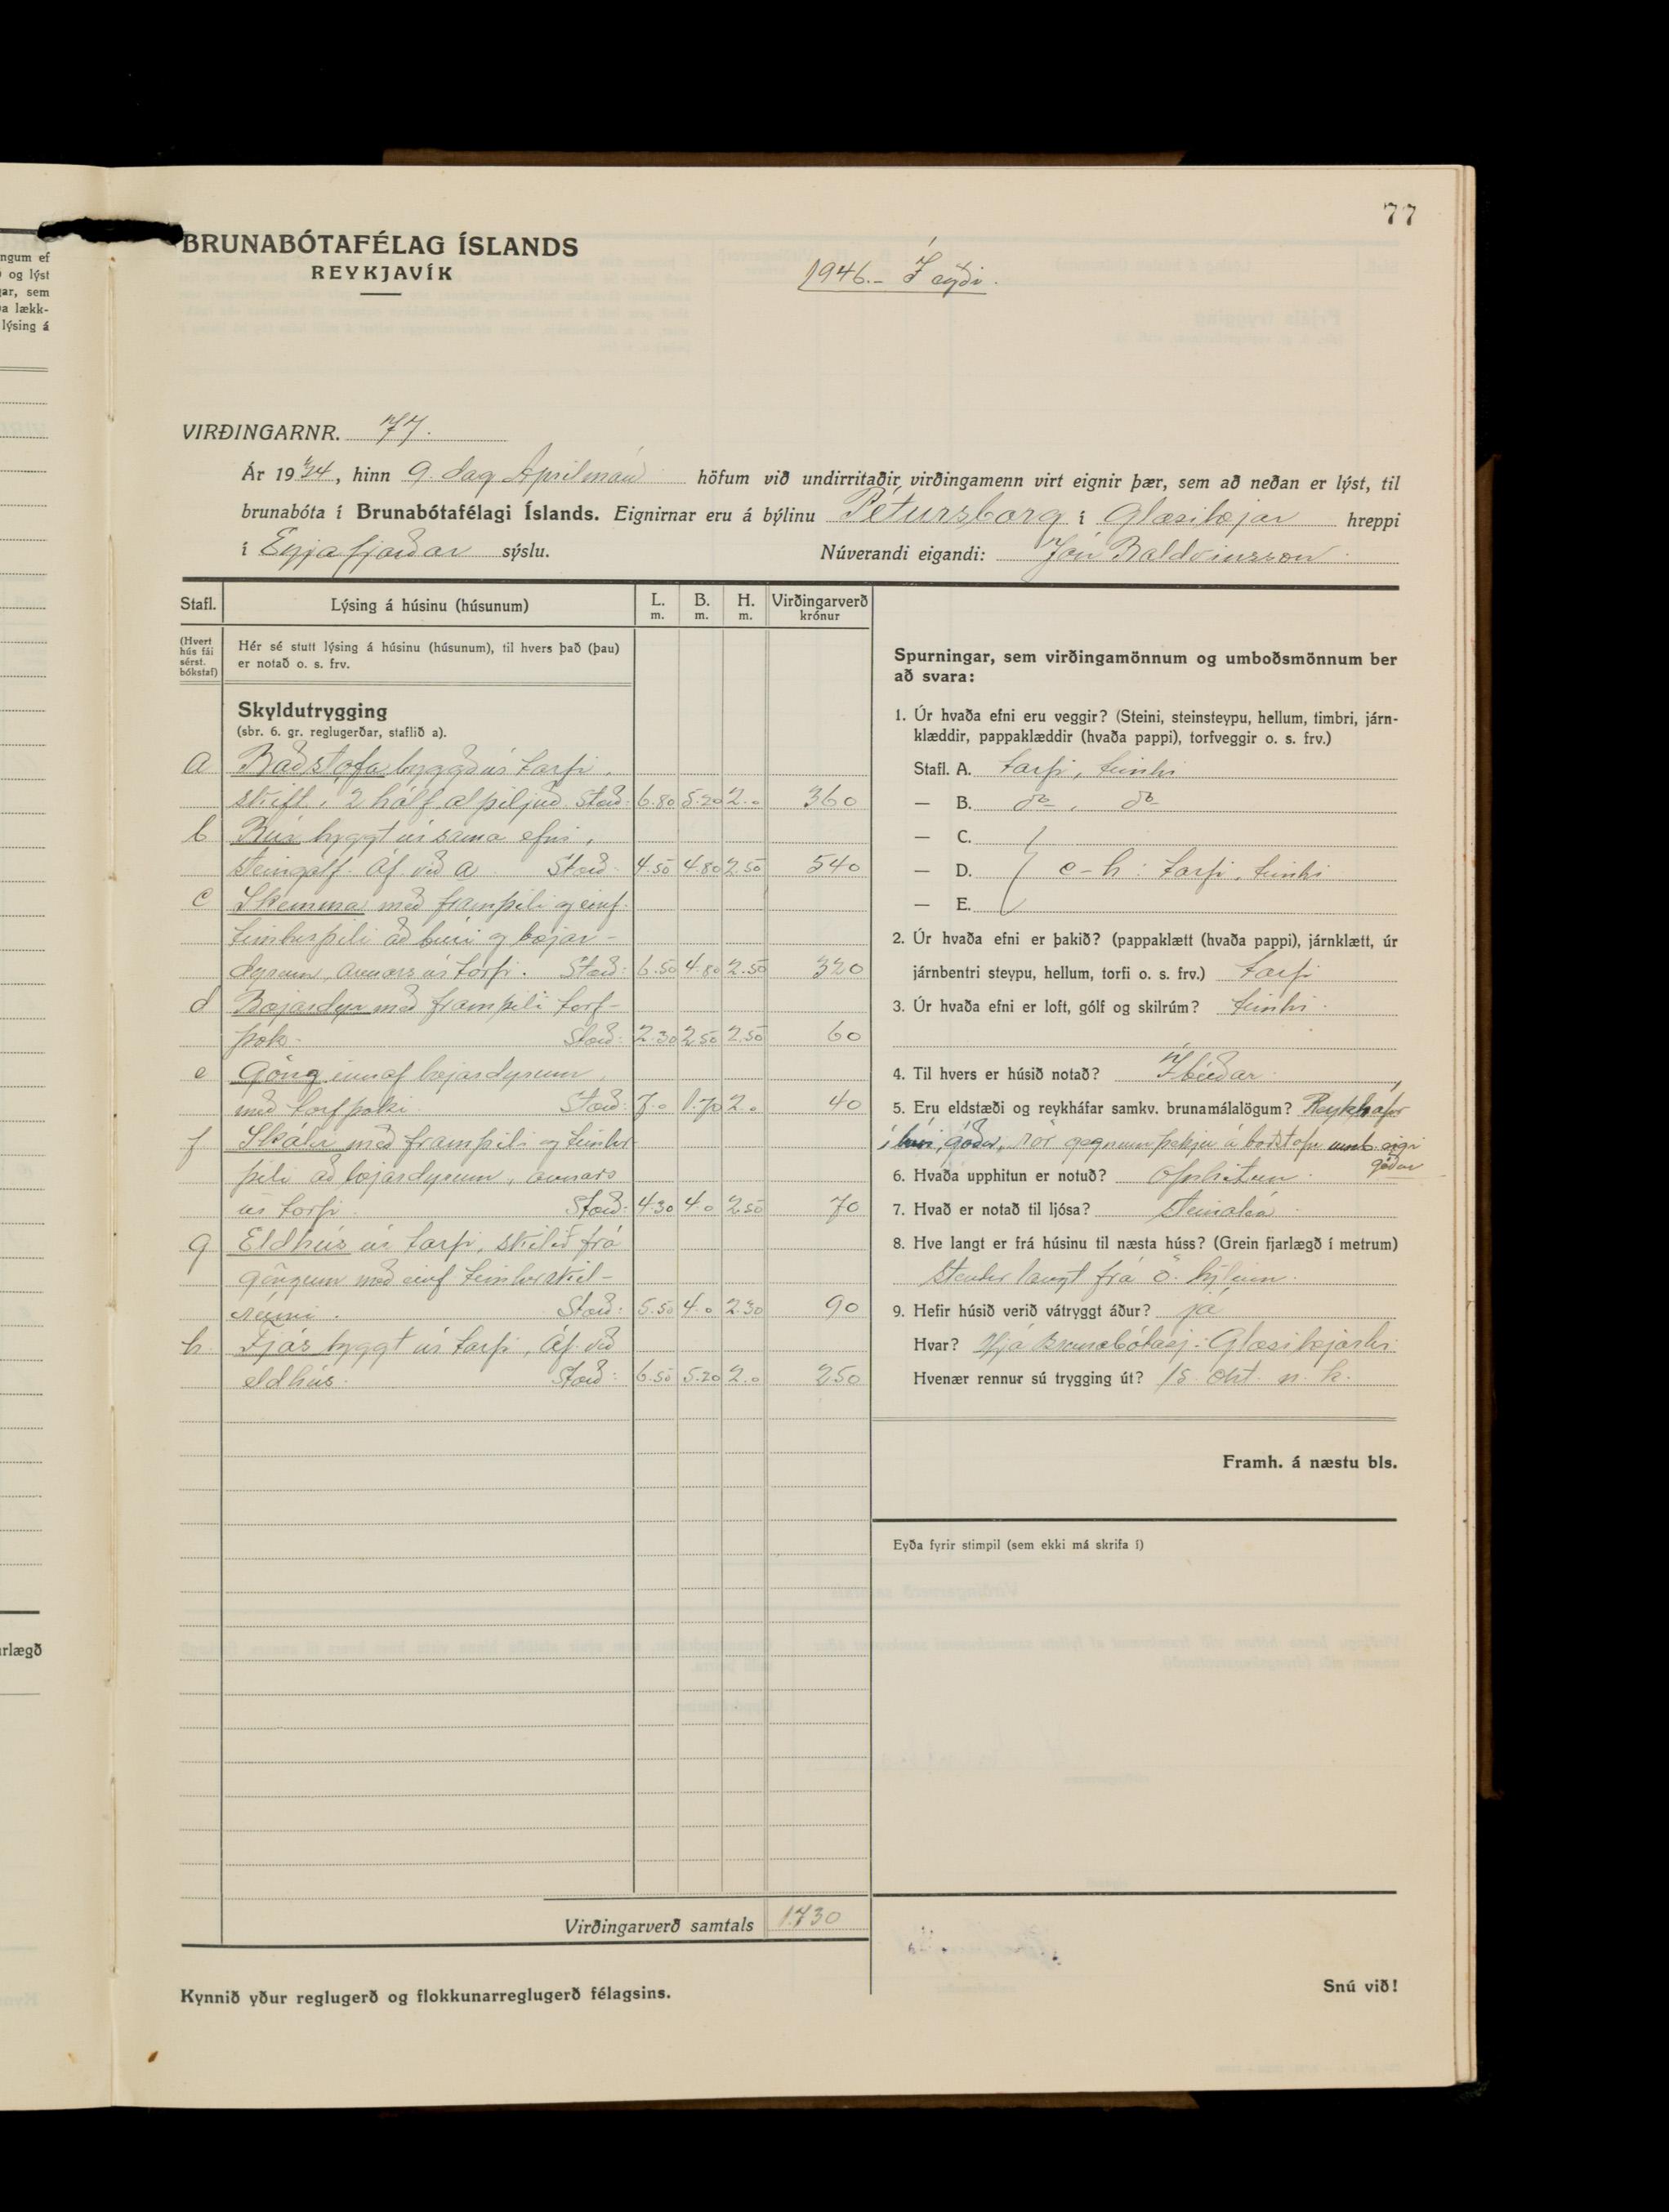 77
BRUNABÓTAFÉLAG ÍSLANDS
REYKJAVÍK
1946.- Í eyði.
VIRÐINGARNR. 77.
Ár 1934, hinn 9. dag Aprílmán höfum við undirritaðir virðingamenn virt eignir þær, sem að neðan er lýst, til
brunabóta í Brunabótafélagi Íslands. Eignirnar eru á býlinu Pétursborg í Glæsibæjar hreppi
í Eyjafjarðar sýslu. Núverandi eigandi: Jón Baldvinsson
Stafl. Lýsing á húsinu (húsunum) L. m. B. m. H. m. Virðingarverð krónur
(Hvert hús fái sérst. bókstaf)
Hér sé stutt lýsing á húsinu (húsunum), til hvers það (þau)
er notað o. s. frv.
Skyldutrygging
(sbr. 6. gr. reglugerðar, staflið a).
a Baðstofa byggð úr torfi,
skift í 2 hálf alþiljuð. Stærð: 6.80 5.20 2.0 360
b Búr byggt úr sama efni,
steingólf. Áf. við a Stærð: 4.50 4.80 2.50 540
c Skemma með framþili og einf.
timburþili að búri og bæjar-
dyrum, annars úr torfi. Stærð: 6.50 4.80 2.50 320
d Bæjardyr með framþili torf-
þak. Stærð: 2.30 2.50 2.50 60
e Göng innaf bæjardyrum
með torfþaki. Stærð: 7.0 1.70 2.0 40
f Skáli með framþili og timbur
þili að bæjardyrum, annars
úr torfi. Stærð: 4.30 4.0 2.50 70
g Eldhús úr torfi, skilið frá
göngum með einf timburskil-
rúmi. Stærð: 5.50 4.0 2.30 90
h. Fjós byggt úr torfi, Áf. við
eldhús. Stærð: 6.50 5.20 2.0 250
Virðingarverð samtals 1.730
Kynnið yður reglugerð og flokkunarreglugerð félagsins.
Spurningar, sem virðingamönnum og umboðsmönnum ber
að svara:
1. Úr hvaða efni eru veggir? (Steini, steinsteypu, hellum, timbri, járn-
klæddir, pappaklæddir (hvaða pappi), torfveggir o. s. frv.)
Stafl. A. torfi, timbri
— B. do , do
— C.
— D. c-h: torfi, timbri
— E.
2. Úr hvaða efni er þakið? (pappaklætt (hvaða pappi), járnklætt, úr
járnbentri steypu, hellum, torfi o. s. frv.) torfi
3. Úr hvaða efni er loft, gólf og skilrúm? timbri.
4. Til hvers er húsið notað? Íbúðar
5. Eru eldstæði og reykháfar samkv. brunamálalögum? Reykháfur
í búri, góður, rör gegnum þekju á baðstofu eigi
góður
6. Hvaða upphitun er notuð? Ofnhitun.
7. Hvað er notað til ljósa? Steinolía
8. Hve langt er frá húsinu til næsta húss? (Grein fjarlægð í metrum)
Stendur langt frá ö. býlum.
9. Hefir húsið verið vátryggt áður? já
Hvar? Hjá Brunabótasj. Glæsibæjarhr.
Hvenær rennur sú trygging út? 15. okt. n. k.
Framh. á næstu bls.
Eyða fyrir stimpil (sem ekki má skrifa í)
Snú við!
ngum ef
og lýst
ar, sem
a lækk-
lýsing á
rlægð